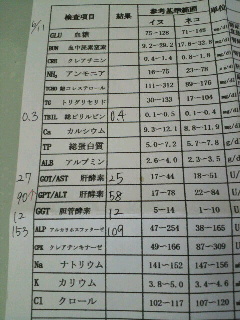 5/11 検査項目 結果 参考基準範囲 単位
イヌ ネコ
GLU 血糖 75−128 71−148
BUN 血中尿素窒素 9.2−29.2 17.6−32.8
CRE クレアチニン 0.4−1.4 0.8−1.8
NH₃ アンモニア 16−75 23−78
TCHO 総コレステロール 111−312 89−176
TG トリグリセリド 30−133 17−104
0.3 TBIL 総ビリルビン 0.4 0.1−0.5 0.1−0.4
Ca カルシウム 9.3−12.1 8.8−11.9
TP 総蛋白質 5.0−7.2 5.7−7.8 g/dl
ALB アルブミン 2.6−4.0 2.3−3.5 g/dl
27 GOT/AST 肝酵素 25 17−44 18−51 U/
90↑ GPT/ALT 肝酵素 58 17−78 22−84 U/
12 GGT 胆管酵素 12 5−14 1−10 U/
153 ALP アルカリホスファターゼ 109 47−254 38−165
CPK クレアチンキナーゼ 49−166 87−309
Na ナトリウム 141−152 147−156
K カリウム 3.8−5.0 3.4−4.6
Cl クロール 102−117 107−120